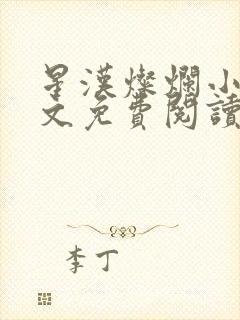 星漢燦爛小
文免費閱讀
李丁